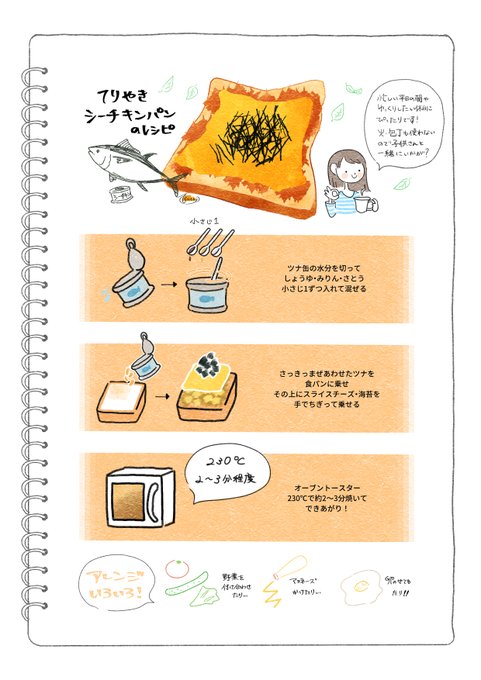 てりやき
シーチキンパン
のレシピ
忙しい平日の朝や
ゆっくりしたい休日に
ぴったりです!
火・包丁も使わない
ので子供さんと
一緒にいかが?
小さじ1
ツナ缶の水分を切って
しょうゆ・みりん・さとう
小さじ1ずつ入れて混ぜる
さっきっまぜあわせたツナを
食パンに乗せ
その上にスライスチーズ・海苔を
手でちぎって乗せる
230℃
2〜3分程度
オーブントースター
230℃で約2〜3分焼いて
できあがり!
アレンジ
いろいろ!
野菜を
付け合わせ
たり…
マヨネーズ
かけたり…
卵のせても
たり!!